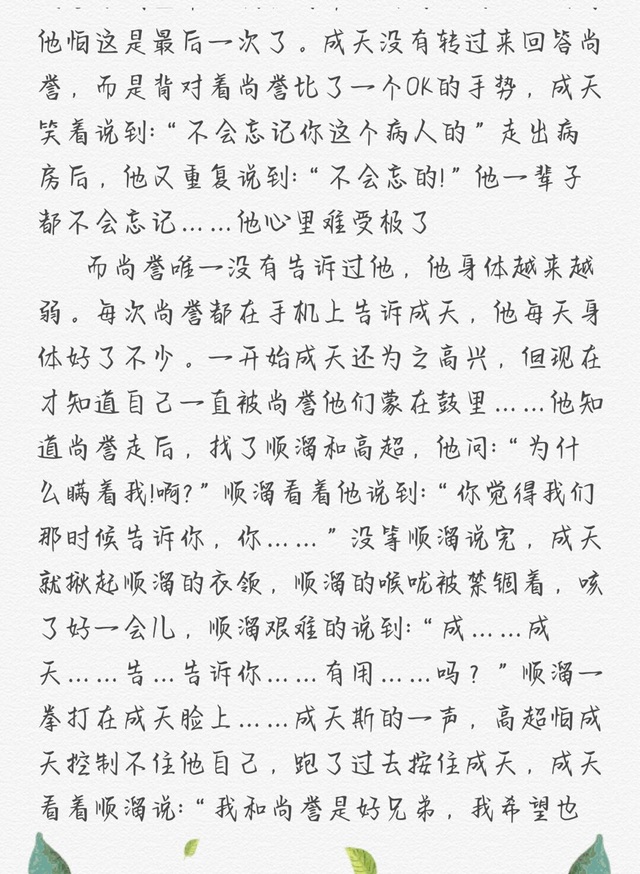 他怕这是最后一次了。成天没有转过来回答尚
誉，而是背对着尚誉比了一个OK的手势，成天
笑着说到:“不会忘记你这个病人的”走出病
房后，他又重复说到:“不会忘的!”他一辈子
都不会忘记……他心里难受极了
而尚誉唯一没有告诉过他，他身体越来越
弱。每次尚誉都在手机上告诉成天，他每天身
体好了不少。一开始成天还为之高兴，但现在
才知道自己一直被尚誉他们蒙在鼓里……他知
道尚誉走后，找了顺溜和高超，他问:“为什
么瞒着我!啊?”顺溜看着他说到:“你觉得我们
那时候告诉你，你……”没等顺溜说完，成天
就揪起顺溜的衣领，顺溜的喉咙被禁锢着，咳
了好一会儿，顺溜艰难的说到:“成……成
天……告…告诉你……有用……吗？”顺溜一
拳打在成天脸上……成天斯的一声，高超怕成
天控制不住他自己，跑了过去按住成天，成天
看着顺溜说:“我和尚誉是好兄弟，我希望也